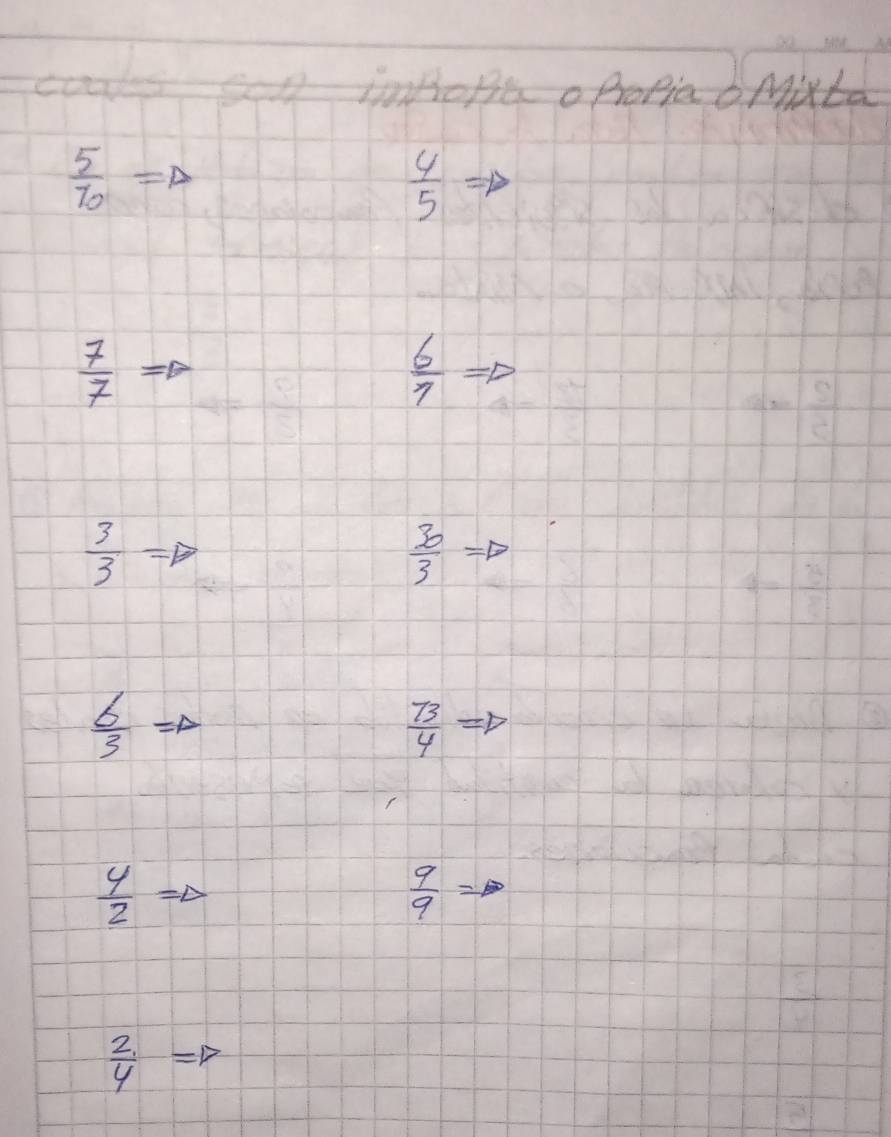 son impropia o Propia o Mixta
5/10 => 4/5 =>
7/7 => 6/7 =>
3/3 => 30/3 =>
6/3 => 13/4 =>
4/2 => 9/9 =>
2/4 =>